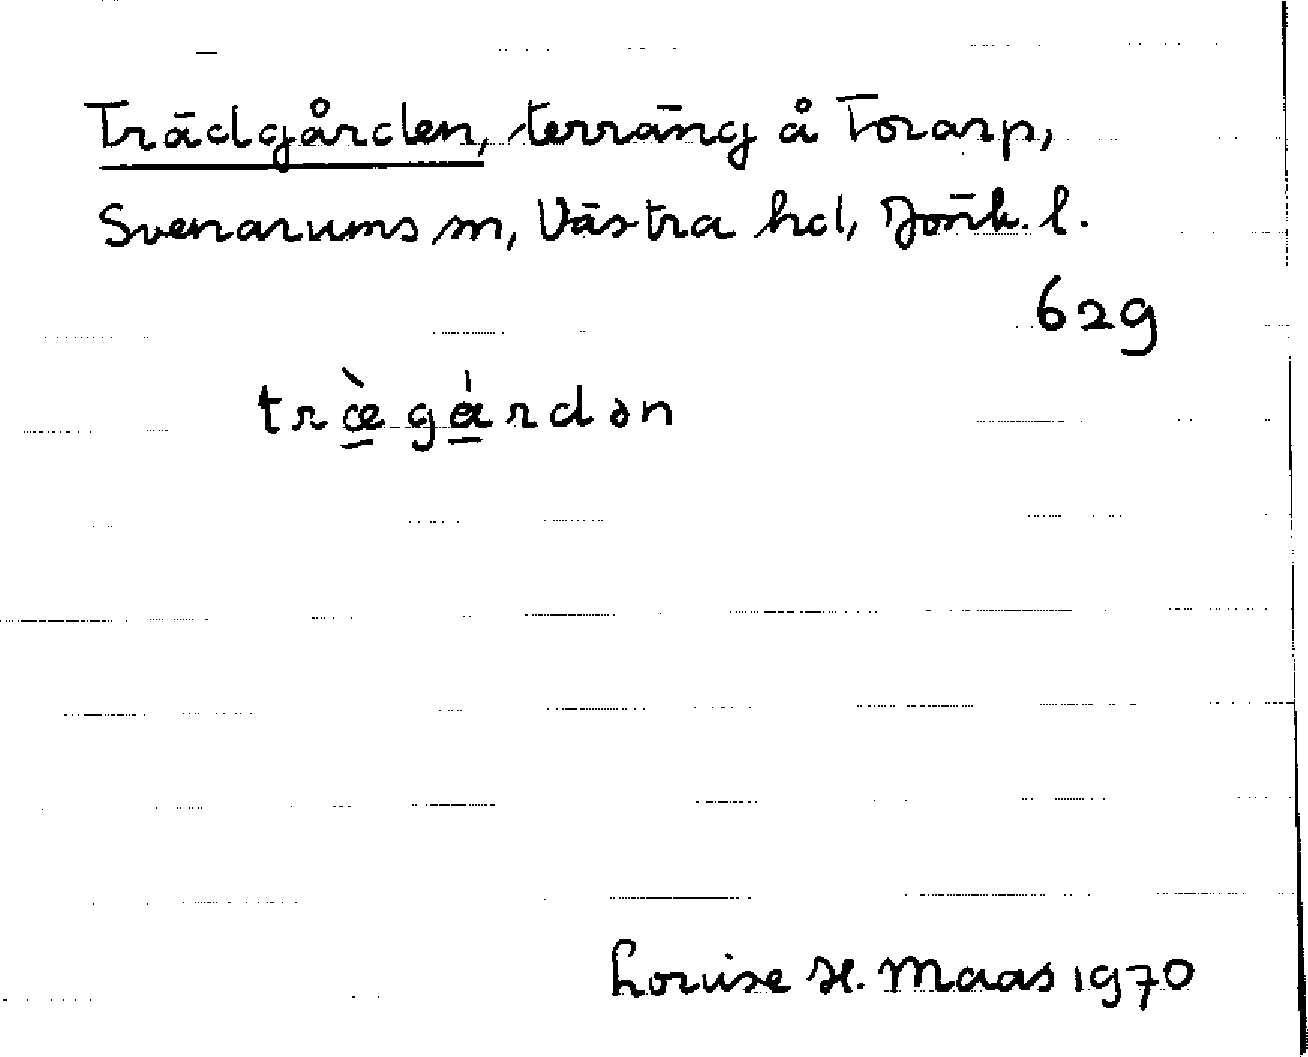 Trädgården, terräng å Torarp,
Svenarums sn, Västra hd, Jönk. l.
629
træ̀gárdən
Louise H. Maas 1970